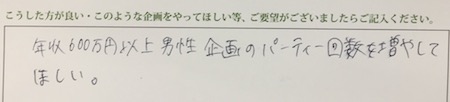 こうした方が良い・このような企画をやってほしい等、ご要望がございましたらご記入ください。
年収600万円以上男性企画のパーティー回数を増やして
ほしい。